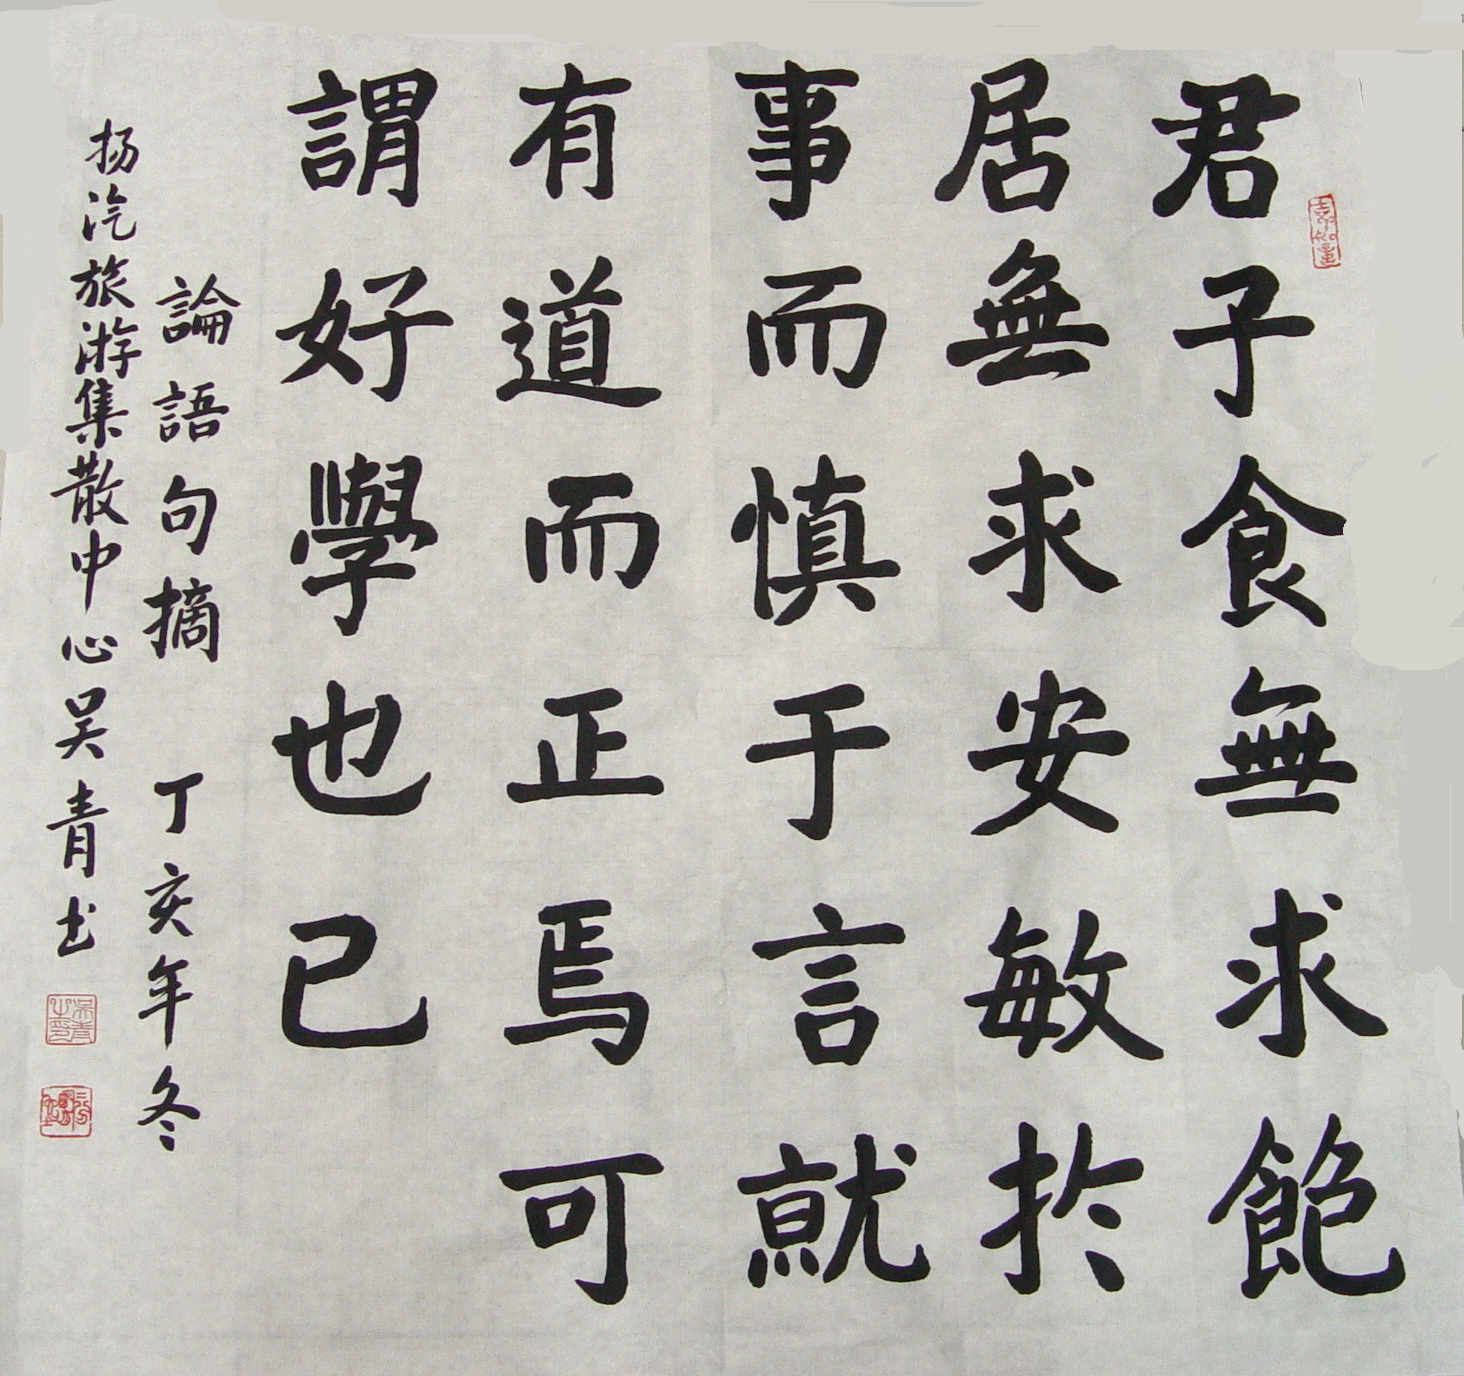 君子食無求飽
居無求安敏於
事而慎于言就
有道而正焉可
謂好學也已
論語句摘 丁亥年冬
扬汽旅游集散中心吴青书